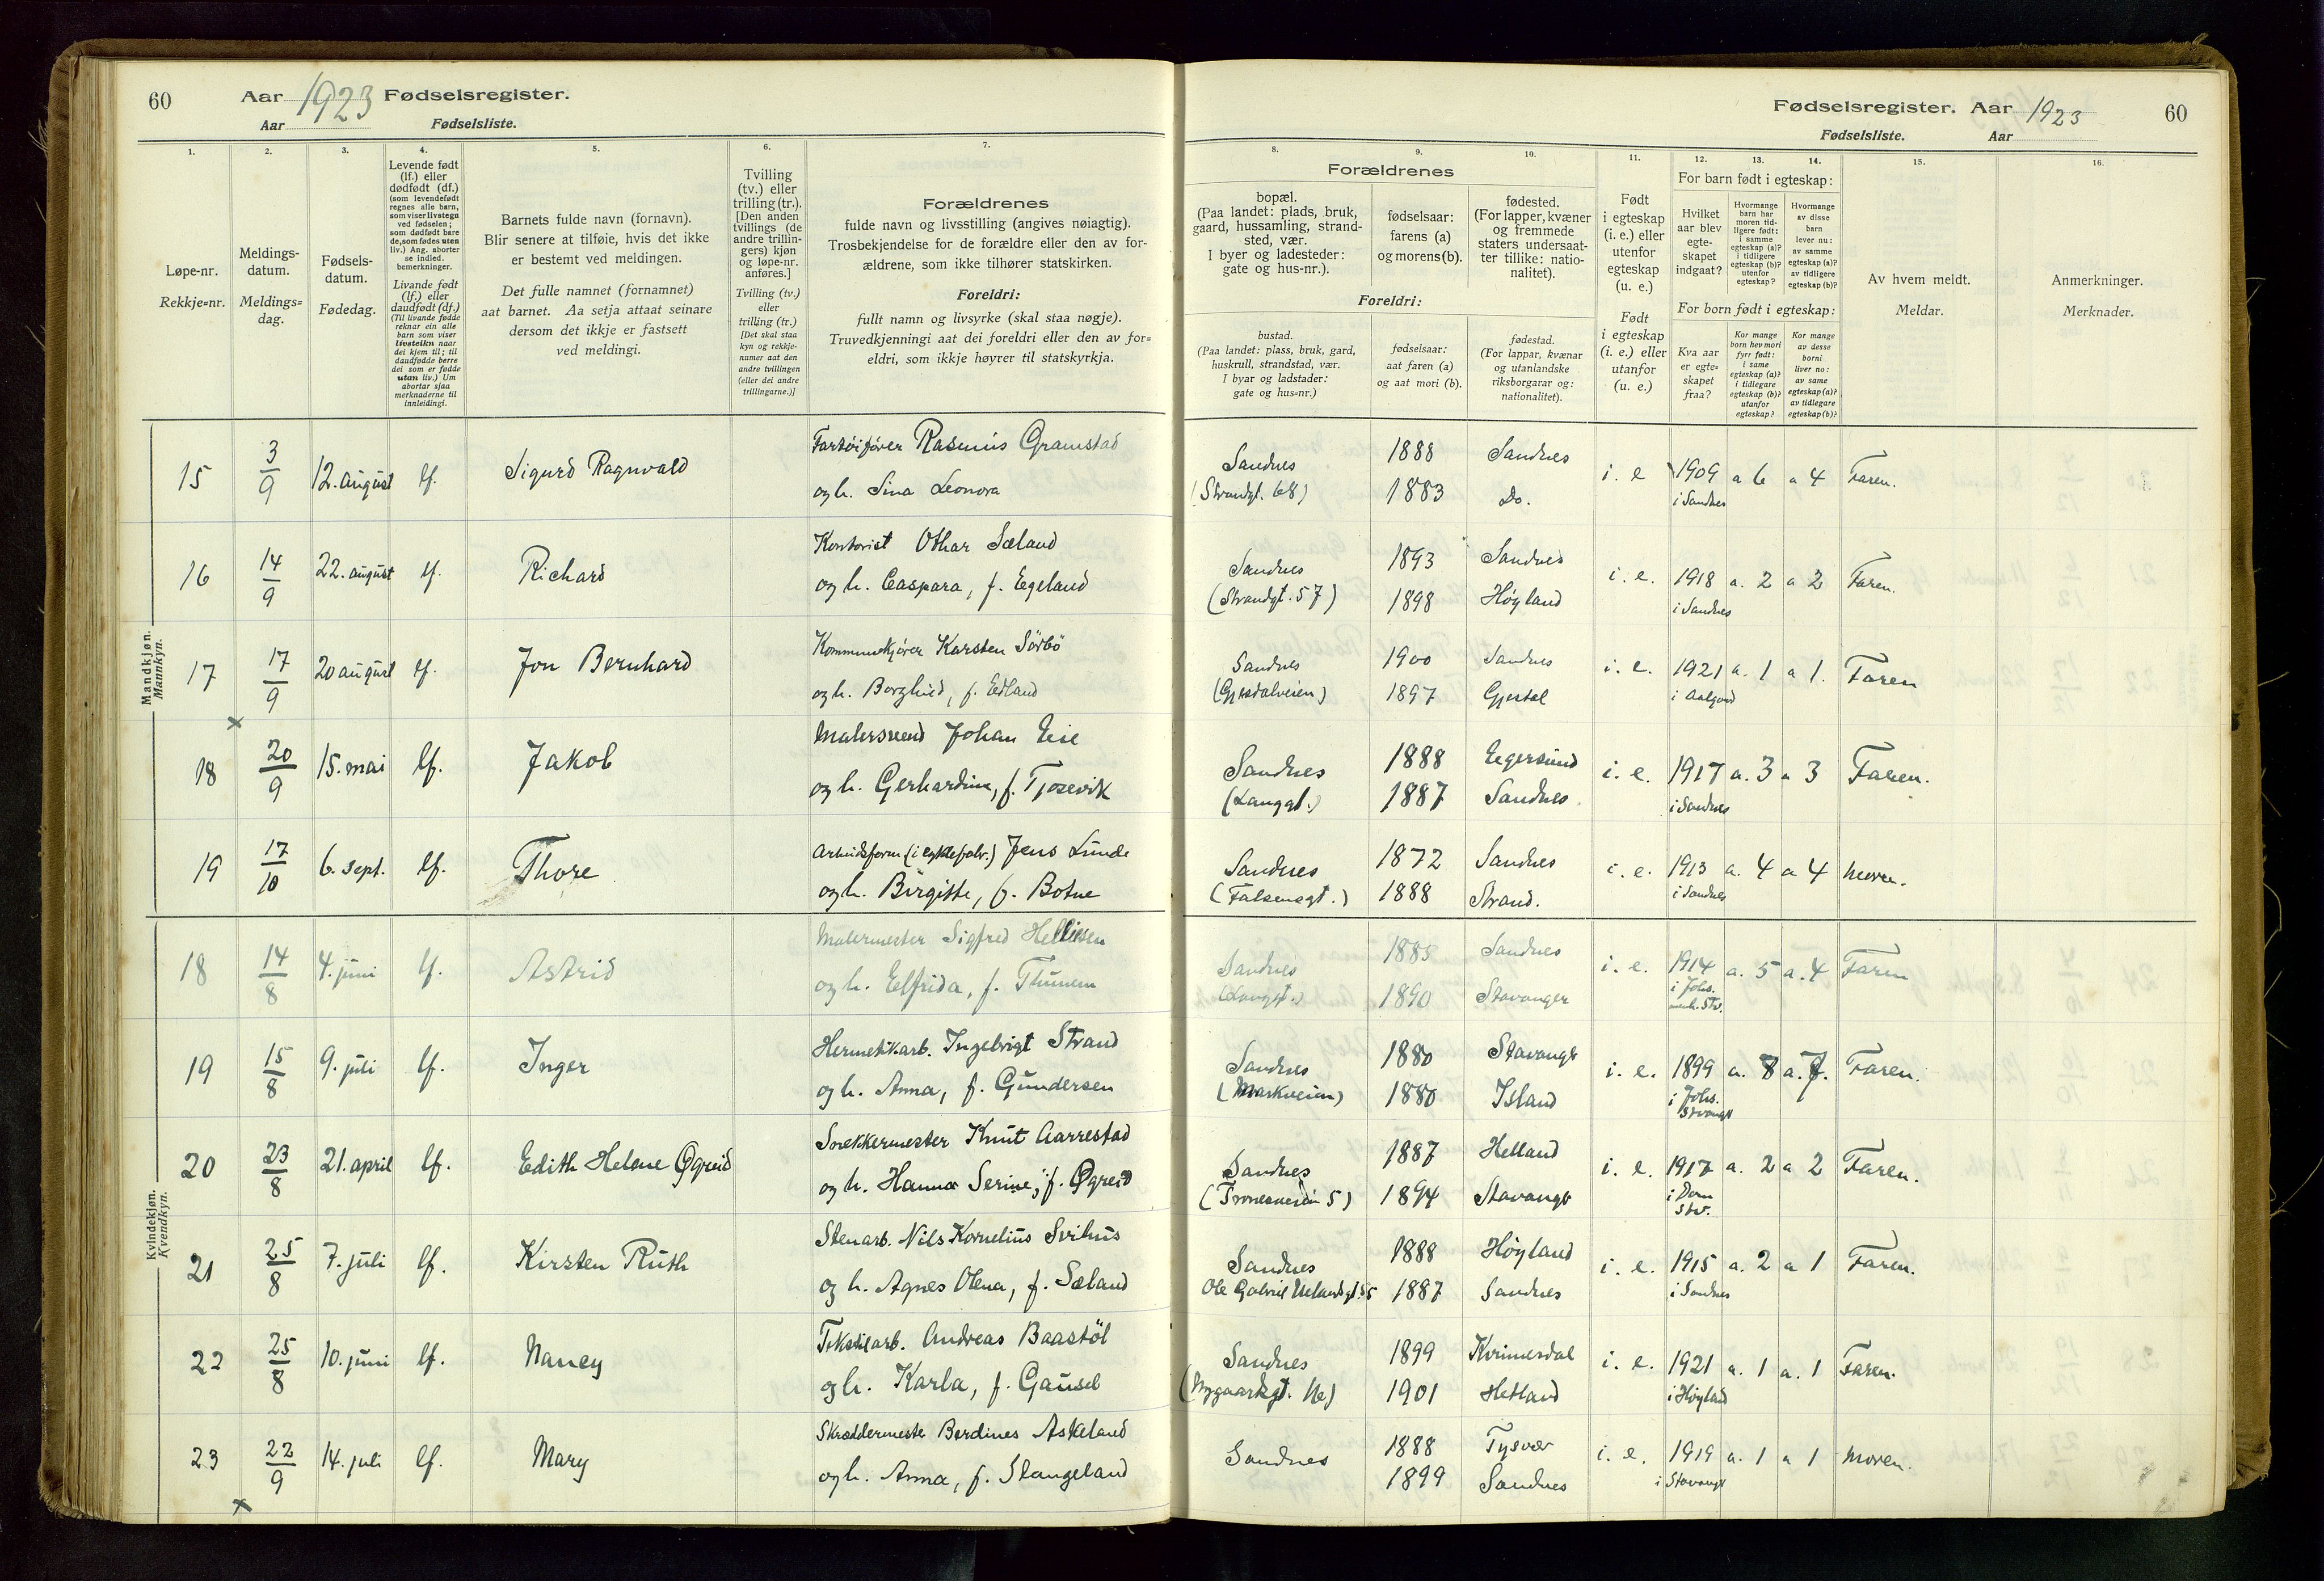 60 Aar 1923 Fødselsregister.
Aar Fødselsliste.
Fødselsregister. Aar 1923 60
Fødselsliste. Aar
1. 2. 3. 4. 5. 6. 7.
Løpe-nr.
Rekkje=nr.
Meldings-
datum.
Meldings=
dag.
Fødsels-
datum.
Fødedag.
Levende født
(lf.) eller
dødfødt (df.)
(som levendefødt
regnes alle barn,
som viser livstegn
ved fødselen;
som dødfødt bare
de, som fødes uten
liv.) Ang. aborter
se indled.
bemerkninger.
Livande født
(lf.) eller
daudfødt (df.)
(Til livande fødde
reknar ein alle
barn som viser
livsteikn naar
dei kjem til; til
daudfødde berre
dei som er fødde
utan liv.) Um
abortar sjaa
merknaderne til
innleidingi.
Barnets fulde navn (fornavn).
Blir senere at tilføie, hvis det ikke
er bestemt ved meldingen.
Det fulle namnet (fornamnet)
aat barnet. Aa setja attaat seinare
dersom det ikkje er fastsett
ved meldingi.
Tvilling
(tv.) eller
trilling (tr.).
[Den anden
tvillings (de
andre trillin-
gers) kjøn
og løpe-nr.
anføres.]
Tvilling (tv.)
eller
trilling (tr.)
[Det skal staa
kyn og rekkje-
numer aat den
andre tvillingen
(eller dei andre
trillingarne.)]
Forældrenes
fulde navn og livsstilling (angives nøiagtig).
Trosbekjendelse for de forældre eller den av for-
ældrene, som ikke tilhører statskirken.
Foreldri:
fullt namn og livsyrke (skal staa nøgje).
Truvedkjenningi aat dei foreldri eller den av for=
eldri, som ikkje høyrer til statskyrkja.
8. 9. 10. 11. 12. 13. 14. 15. 16.
Forældrenes
bopæl.
(Paa landet: plads, bruk,
gaard, hussamling, strand-
sted, vær.
I byer og ladesteder:
gate og hus-nr.).
fødselsaar:
farens (a)
og morens (b).
fødested.
(For lapper, kvæner
og fremmede
staters undersaat-
ter tillike: natio-
nalitet).
Foreldri:
bustad.
(Paa landet: plass, bruk, gard,
huskrull, strandstad, vær.
I byar og ladstader:
gate og hus=nr.)
fødselsaar:
aat faren (a)
og aat mori (b).
fødestad.
(For lappar, kvænar
og utanlandske
riksborgarar og:
nationalitet).
Født
i egteskap
(i. e.) eller
utenfor
egteskap
(u. e.)
Født
i egteskap
(i. e.) eller
utanfor
(u. e.)
For barn født i egteskap:
Hvilket
aar blev
egte-
skapet
indgaat?
Hvormange
barn har
moren tid-
ligere født:
i samme
egteskap (a)?
i tidligere
egteskap (b)?
utenfor
egteskap?
Hvormange
av disse
barn
lever nu:
av samme
egteskap (a)?
av tidligere
egteskap (b)?
For born født i egteskap:
Kva aar
er egte=
skapet
fraa?
Kor mange
born hev mori
fyrr født:
i same
egteskap (a)?
i tidlegare
egteskap (b)?
utanfor
egteskap?
Kor mange
av desse
borni
liver no:
av same
egteskap (a)?
av tidlegare
egteskap (b)?
Av hvem meldt.
Meldar.
Anmerkninger.
Merknader.
Mandkjøn.
Mannkyn.
15 3/9 12. august lf. Sigurd Ragnvald Fartøifører Rasmus Gramstad
og h. Sina Leonora
Sandnes 1888 Sandnes i. e 1909 a 6 a 4 Faren.
(Strandgt. 68) 1883 Do. i Sandnes
16 14/9 22. august lf. Richard Kontorist Othar Sæland
og h. Caspara, f. Egeland
Sandnes 1893 Sandnes i. e. 1918 a. 2 a 2 Faren.
(Strandgt. 57) 1898 Høyland i Sandnes
17 17/9 20 august lf. Jon Bernhard Karsten Sörbö
og h. Borghild, f. Edland
Sandnes 1900 Sandnes i. e. 1921 a. 1 a 1. Faren
(Gjesdalveien) 1897 Gjestal i Aalgaard
×
18 20/9 15. mai lf. Jakob Malersvend Johan Eie
og h. Gerhardine, f. Tjosevik
Sandnes 1888 Egersund i. e. 1917 a. 3 a 3 Faren.
(Langgt.) 1887 Sandnes. i Sandnes
19 17/10 6. sept. lf. Thore Jens Lunde
og h. Birgitte, f. Botne
Sandnes 1872 Sandnes i. e. 1913 a. 4 a 4 Moren.
(Falsensgt.) 1888 Strand. i Sandnes
Kvindekjøn.
Kvendkyn.
18 14/8 4. juni lf. Astrid Malermester Sigfred Helliesen
og h. Elfrida, f. Thunem
Sandnes 1885 Sandnes i. e. 1914 a. 5 a. 4 Faren
(Langgt.) 1890 Stavanger i Johs.
menh. Stv.
19 15/8 9. juli lf. Inger Hermetikarb. Ingebrigt Strand
og h. Anna, f. Gundersen
Sandnes 1880 Stavangr i. e. 1899 a. 8 a. 7. Faren.
(Markveien) 1880 Island i Johs.
Stvangr
20 23/8 21. april lf. Edith Helene Øgreid Snekkermester Knut Aarrestad
og h. Hanna Serine, f. Øgreid
Sandnes 1887 Helland i. e. 1917 a. 2 a 2 Faren.
(Tronesveien 5) 1894 Stavangr i Dom
Stv.
21 25/8 7. juli lf. Kirsten Ruth Stenarb. Nils Kornelius Svihus
og h. Agnes Olena, f. Sæland
Sandnes 1888 Høyland i. e. 1915 a. 2 a 1 Faren.
Ole Gabriel Uelandsgt. 55 1887 Sandnes i Sandnes
22 25/8 10. juni lf. Nancy Tekstilarb. Andreas Baastöl
og h. Karla, f. Gausel
Sandnes 1899 Kvinesdal i. e. 1921 a. 1 a. 1 Faren.
(Nygaardsgt. ) 1901 Hetland i Høyland
23 22/9 14. juli lf. Mary Skræddermester Berdines Askeland
og h. Anna, f. Stangeland
Sandnes 1888 Tysvær i. e. 1919 a. 1 a 1 Moren.
1899 Sandnes i Stavangr
×